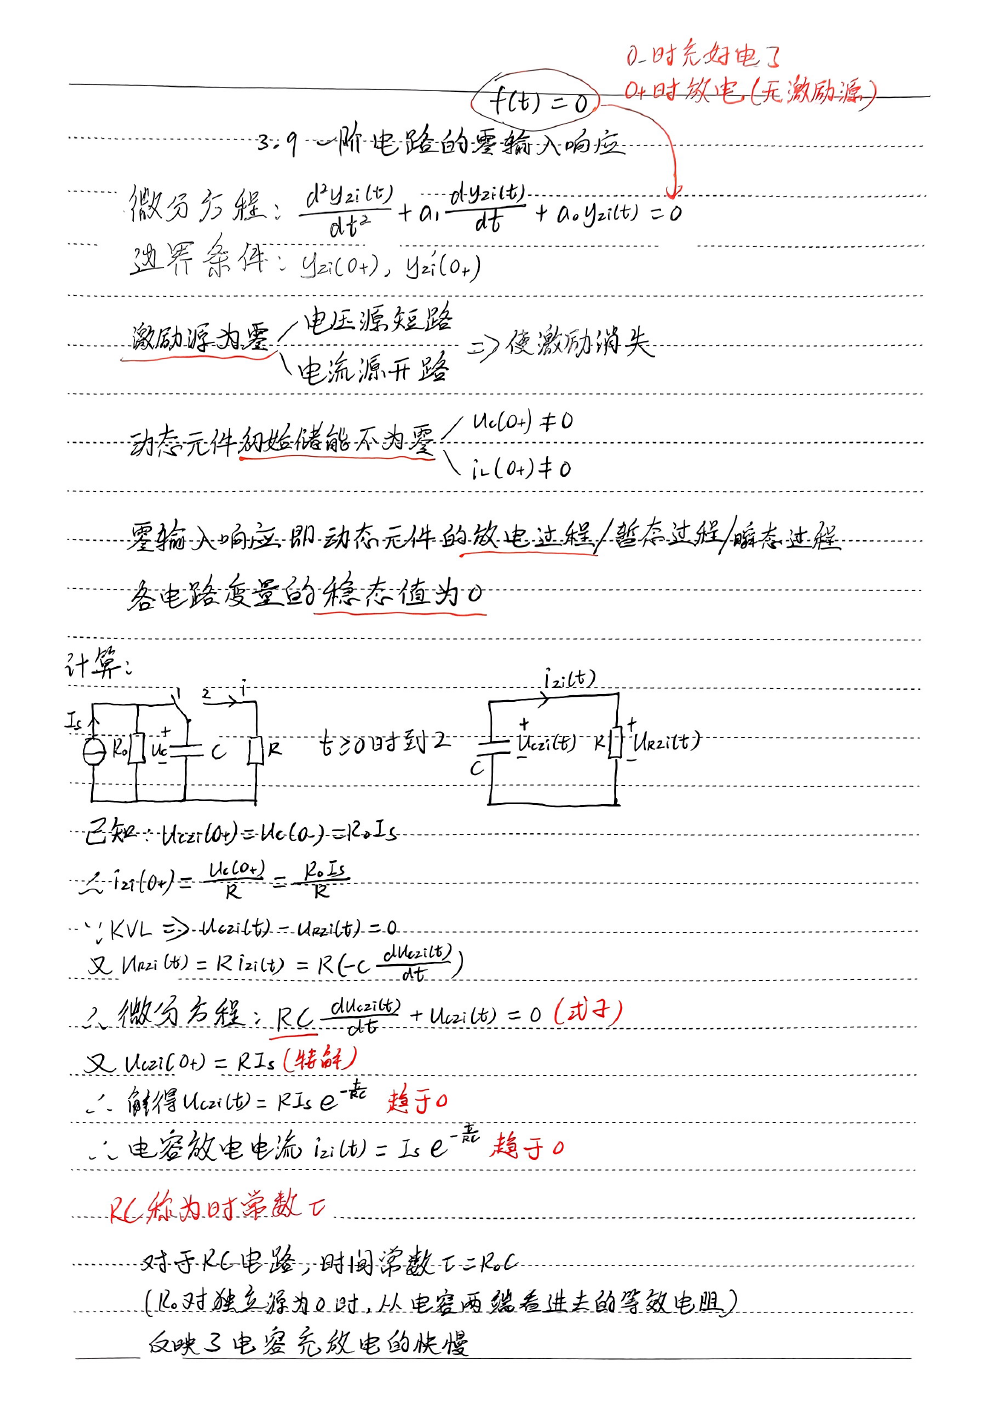 0-时充好电了
0+时放电(无激励源)
f(t)=0
3.9 一阶电路的零输入响应
微分方程: d²yzi(t)/dt² + a₁ dyzi(t)/dt + a₀yzi(t) = 0
边界条件: yzi(0+), yzi'(0+)
激励源为零 电压源短路
电流源开路 => 使激励消失
动态元件初始储能不为零 uc(0+)≠0
iL(0+)≠0
零输入响应即动态元件的放电过程/暂态过程/瞬态过程
各电路变量的稳态值为0
计算:
Is R₀ + uc - C 1 2 i R
t≥0时到2
izi(t) C + uczi(t) - R + uRzi(t) -
已知: uczi(0+)=uc(0-)=R₀Is
∴ izi(0+) = uc(0+)/R = R₀Is/R
∵ KVL => uczi(t) - uRzi(t) = 0
又 uRzi(t) = R izi(t) = R(-C duczi(t)/dt)
∴ 微分方程: RC duczi(t)/dt + uczi(t) = 0 (式子)
又 uczi(0+) = RIs (特解)
∴ 解得 uczi(t) = RIs e^(-t/RC) 趋于0
∴ 电容放电电流 izi(t) = Is e^(-t/RC) 趋于0
RC称为时常数τ
对于RC电路,时间常数τ=R₀C
(R₀对独立源为0时,从电容两端看进去的等效电阻)
反映了电容充放电的快慢